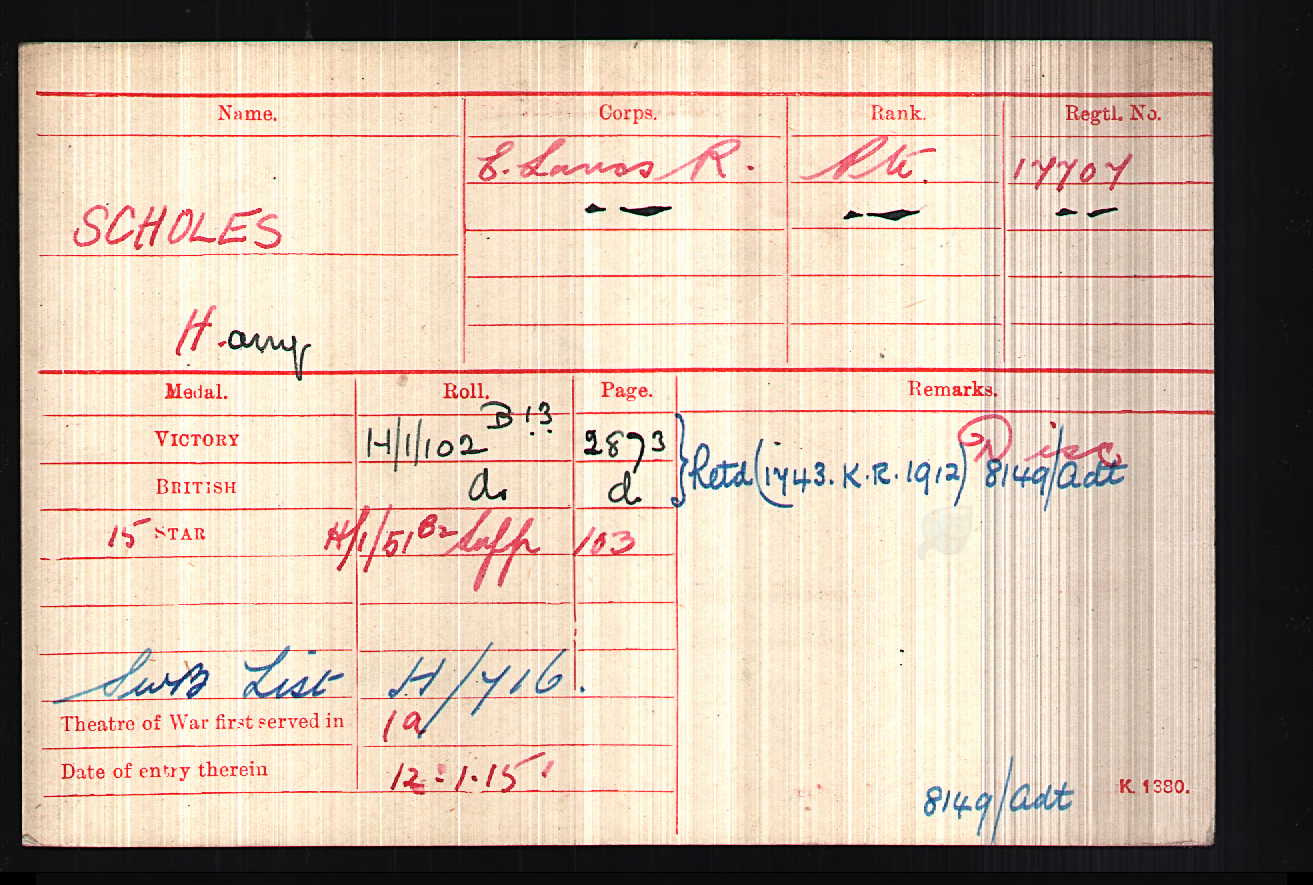 Name. Corps. Rank. Regtl. No.
E. Lancs R. Pte. 17707
SCHOLES
Harry
Medal. Roll. Page. Remarks.
VICTORY H/1/102 B13 2873 Retd (1743. K.R. 1912) 8149/Adt
Disc
BRITISH do. do.
15 STAR H/1/51 B2 103
SWB List H/716.
Theatre of War first served in 1a
Date of entry therein 12.1.15
8149/Adt K. 1380.